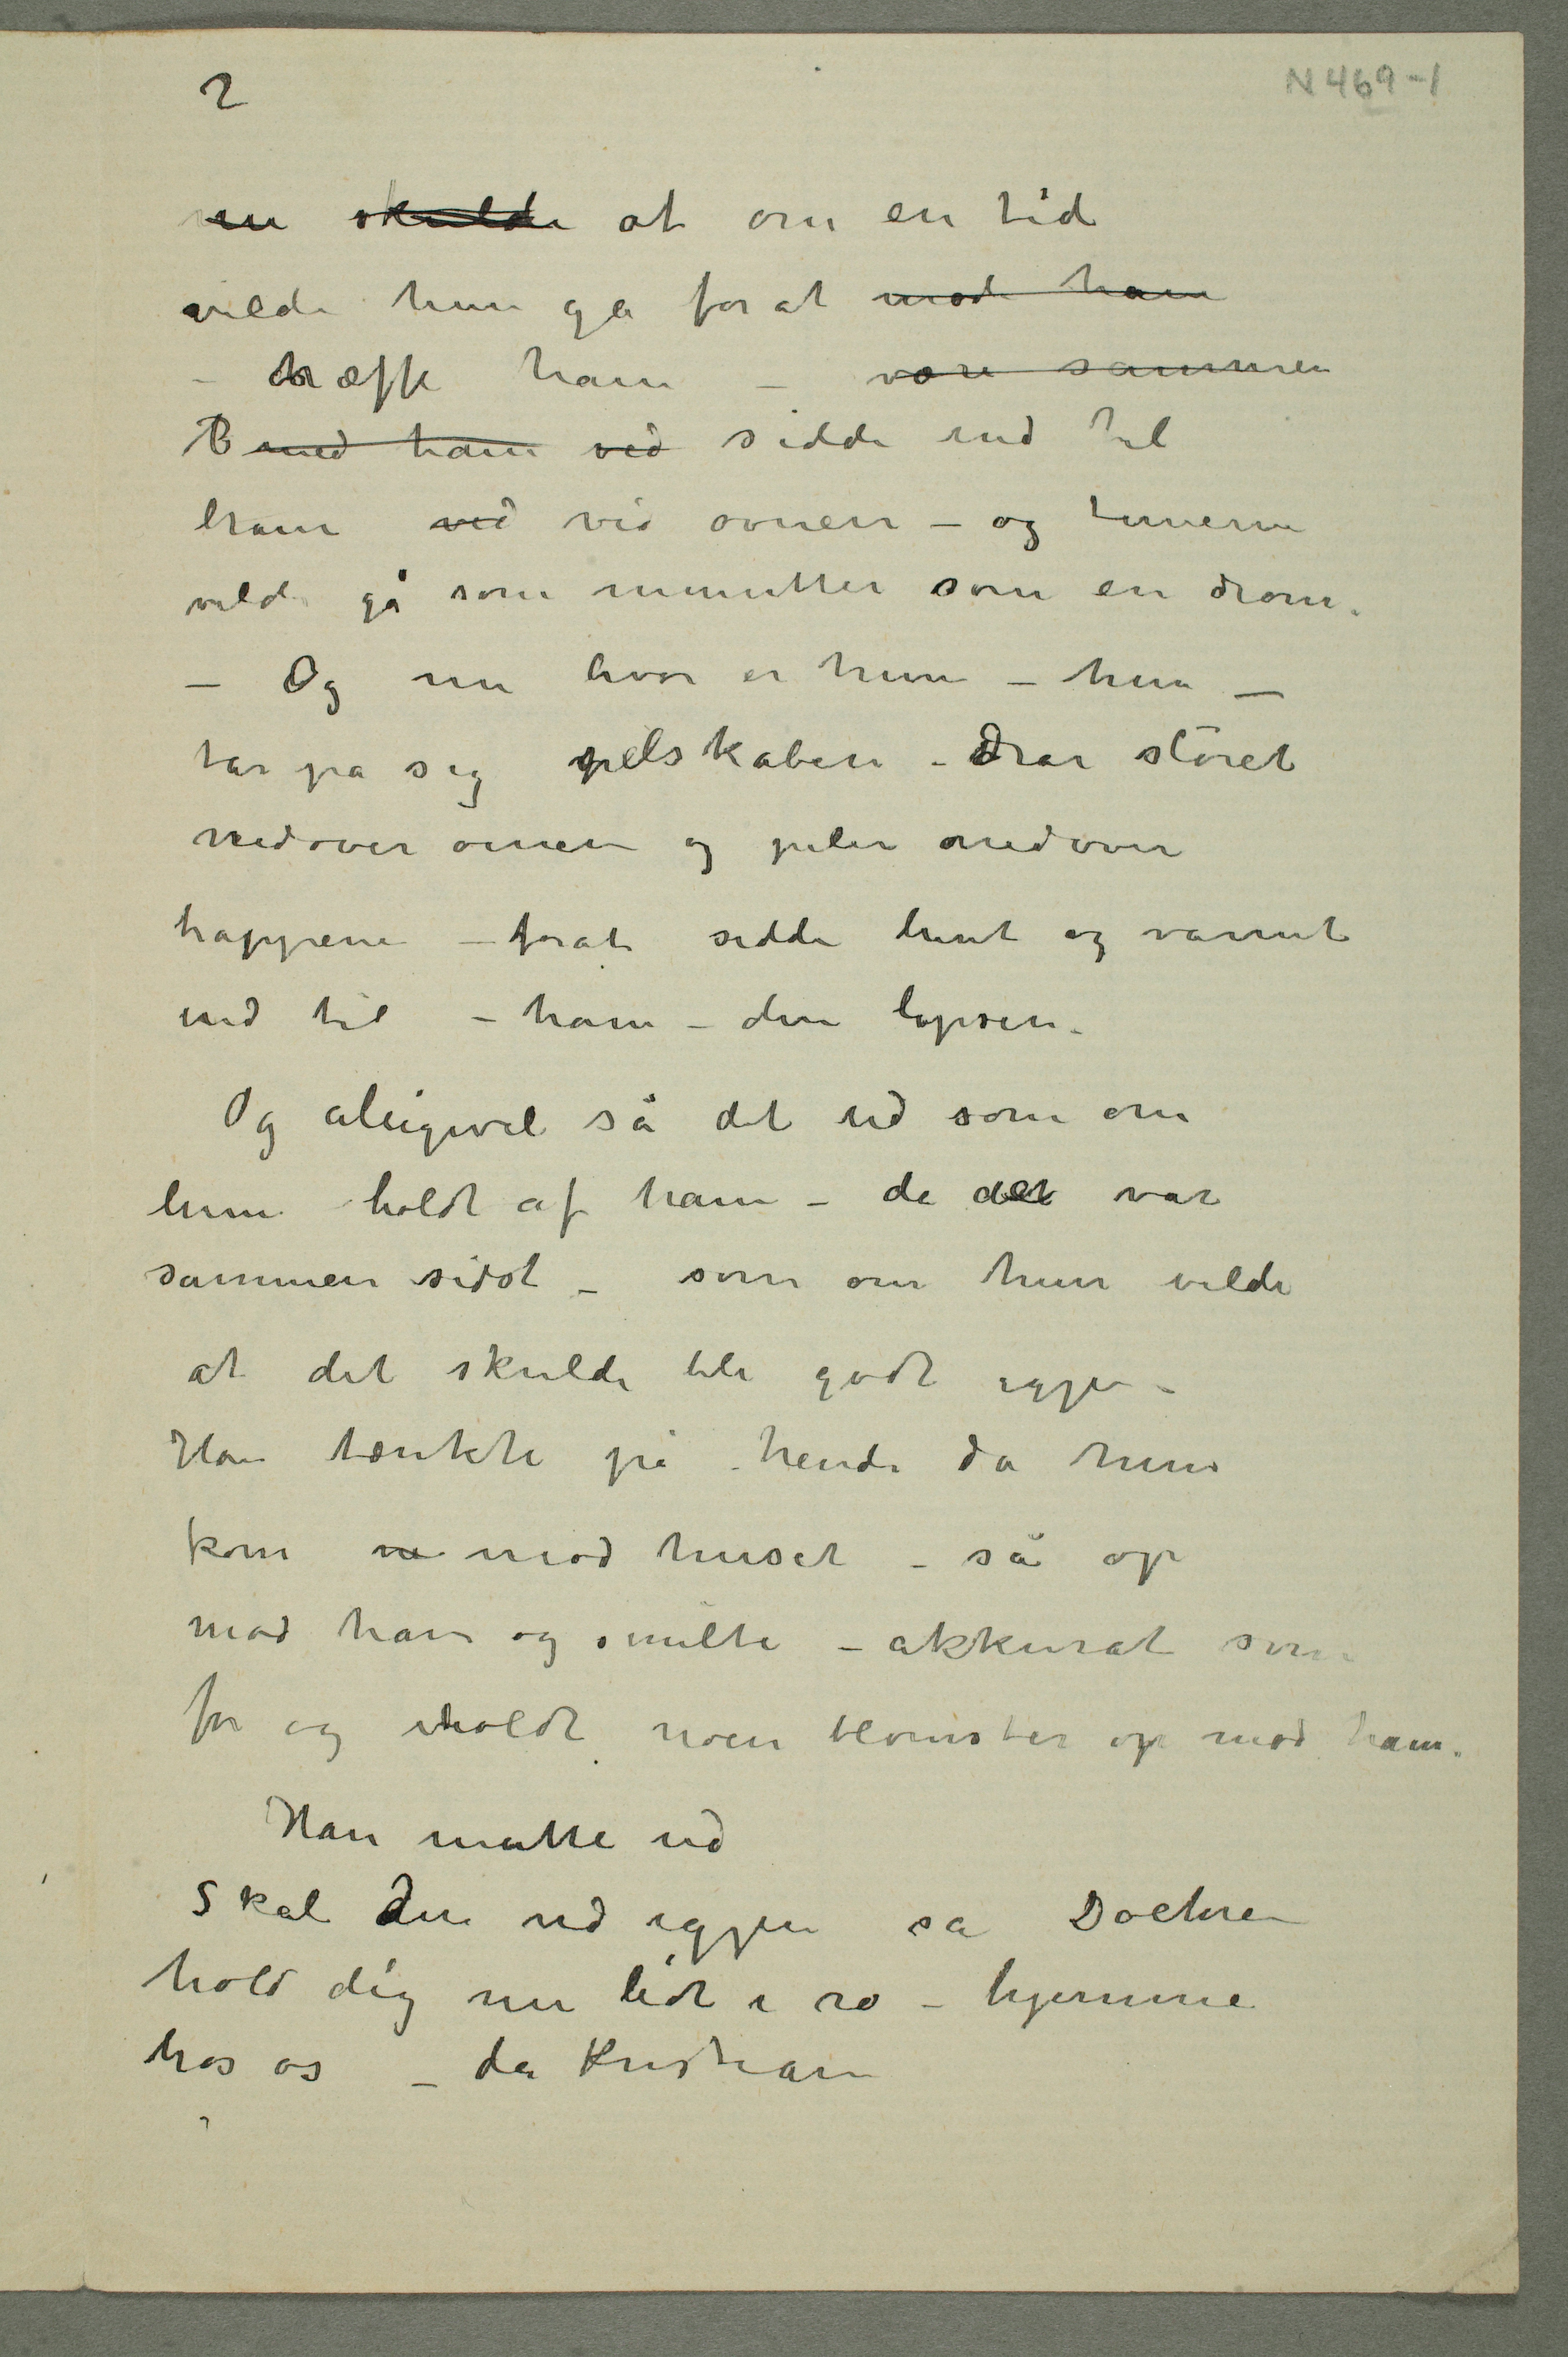 2
N 469-1
nu skulde at om en tid
vilde hun gå forat møde ham
– træffe ham – være sammen
B med ham ved sidde ind til
ham ved ved ovnen – og timerne
vilde gå som minutter som en drøm.
– Og nu hvor er hun – hun –
tar på sig pelskåben – drar sløret
nedover øinene og piler nedover
trappene – forat sidde lunt og varmt
ind til – ham – den lapsen.
Og aligevel så det ud som om
hun holdt af ham – da det var
sammen sidst – som om hun vilde
at det skulde bli godt igjen –
Han tænkte på hende da hun
kom ne mod huset – så op
mod ham og smilte – akkurat som
før og holdt noen blomster op mod ham.
Han måtte ud
Skal du ud igjen sa Doctoren
hold dig nu lidt i ro – hjemme
hos os – da Kristian